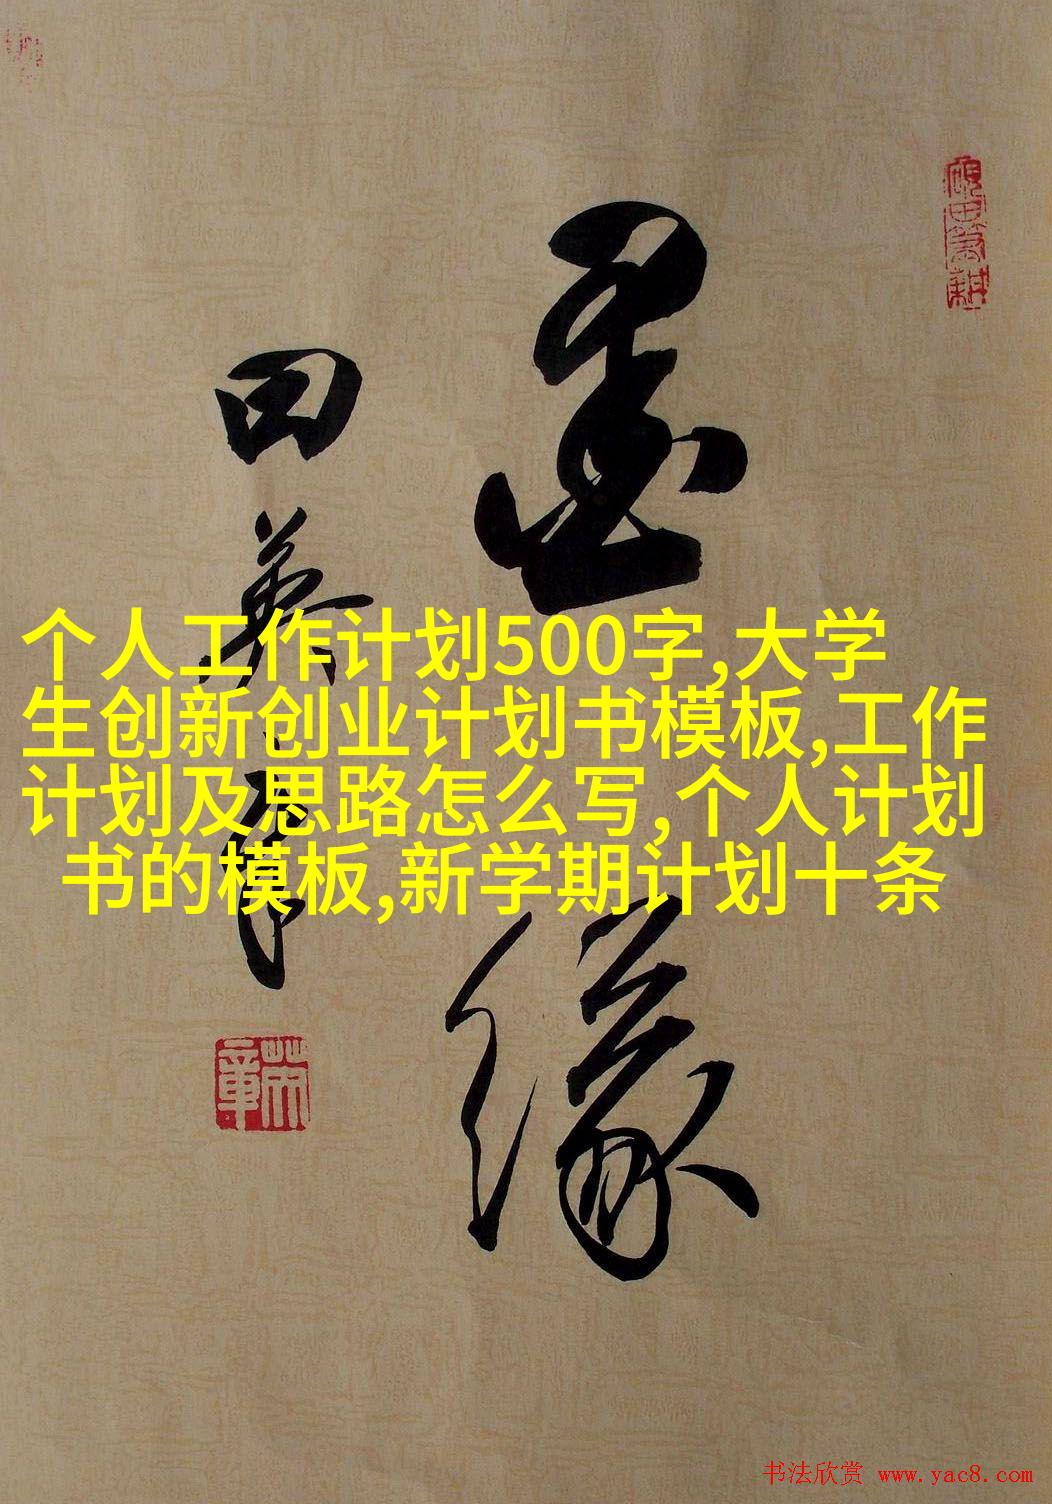 硯田筆耕
墨缘
田英章
个人工作计划500字,大学
生创新创业计划书模板,工作
计划及思路怎么写,个人计划
书的模板,新学期计划十条
英章
书法欣赏 www.yac8.com